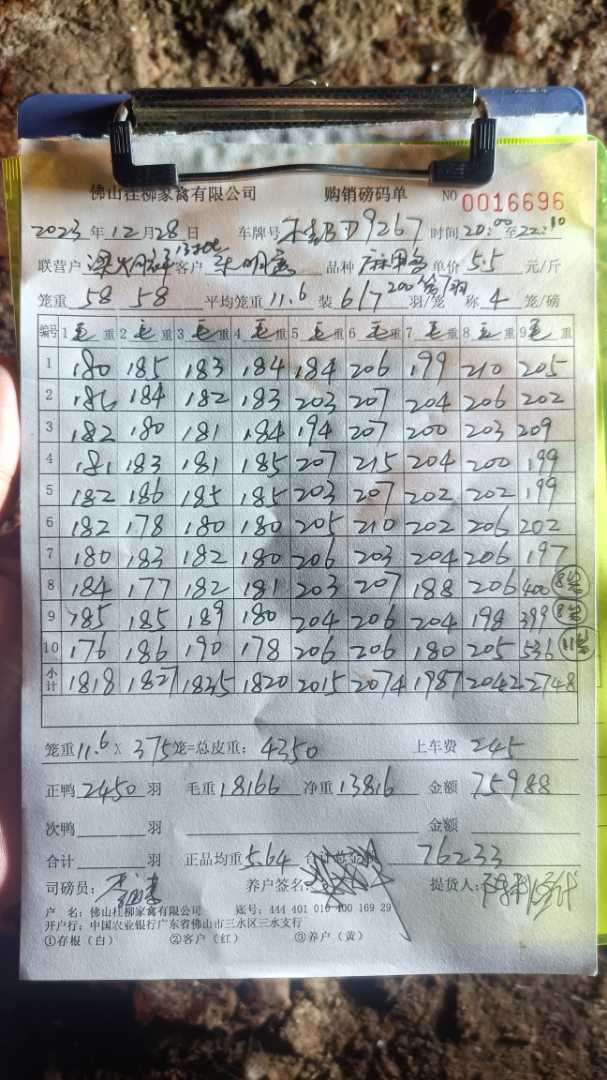 佛山桂柳家禽有限公司 购销磅码单 NO 0016696
2023年12月28日 车牌号 D9267 时间20:00至22:10
联营户 客户 品种 单价5.5元/斤
笼重58 58 平均笼重11.6 装6/7羽/笼 称4笼/磅
编号 1毛重 2毛重 3毛重 4毛重 5毛重 6毛重 7毛重 8毛重 9毛重
1 180 185 183 184 184 206 199 210 205
2 186 184 182 183 203 207 204 206 202
3 182 180 181 184 194 207 200 203 209
4 181 183 181 185 207 215 204 200 199
5 182 186 185 185 203 207 202 202 199
6 182 178 180 180 205 210 202 206 202
7 180 183 182 180 206 203 204 206 197
8 184 177 182 181 203 207 188 206 400 8笼
9 185 185 189 180 204 206 204 198 399 8笼
10 176 186 190 178 206 206 180 205 536 11笼
小计 1818 1827 1835 1820 2015 2074 1987 2042 2748
笼重11.6×375笼=总皮重:4350 上车费 245
正鸭2450羽 毛重18166 净重13816 金额75988
次鸭 羽 金额
合计 羽 正品均重5.64 合计总金额 76233
司磅员: 养户签名: 提货人:
户 名:佛山桂柳家禽有限公司 账号:444 401 010 400 169 29
开户行:中国农业银行广东省佛山市三水区三水支行
①存根(白) ②客户(红) ③养户(黄)